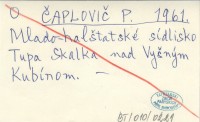 O ČAPLOVIČ P. 1961.
Mlado-halštatské sídlisko
Tupá Skalka nad Vyšným
Kubínom. —
BJ/010/0219